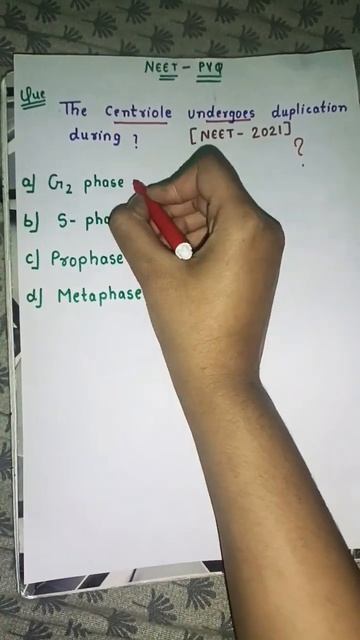 NEET - PYQ
Que The Centriole undergoes duplication
during ? [NEET - 2021]
?
a) G2 phase
b) S - pha
c) Prophase
d) Metaphase